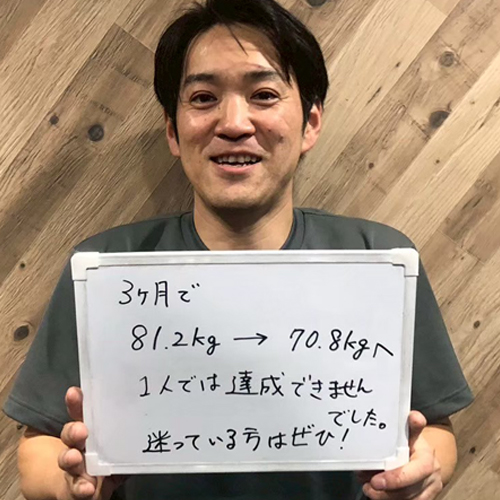 3ヶ月で
81.2kg → 70.8kgへ
1人では達成できません
でした。
迷っている方はぜひ!